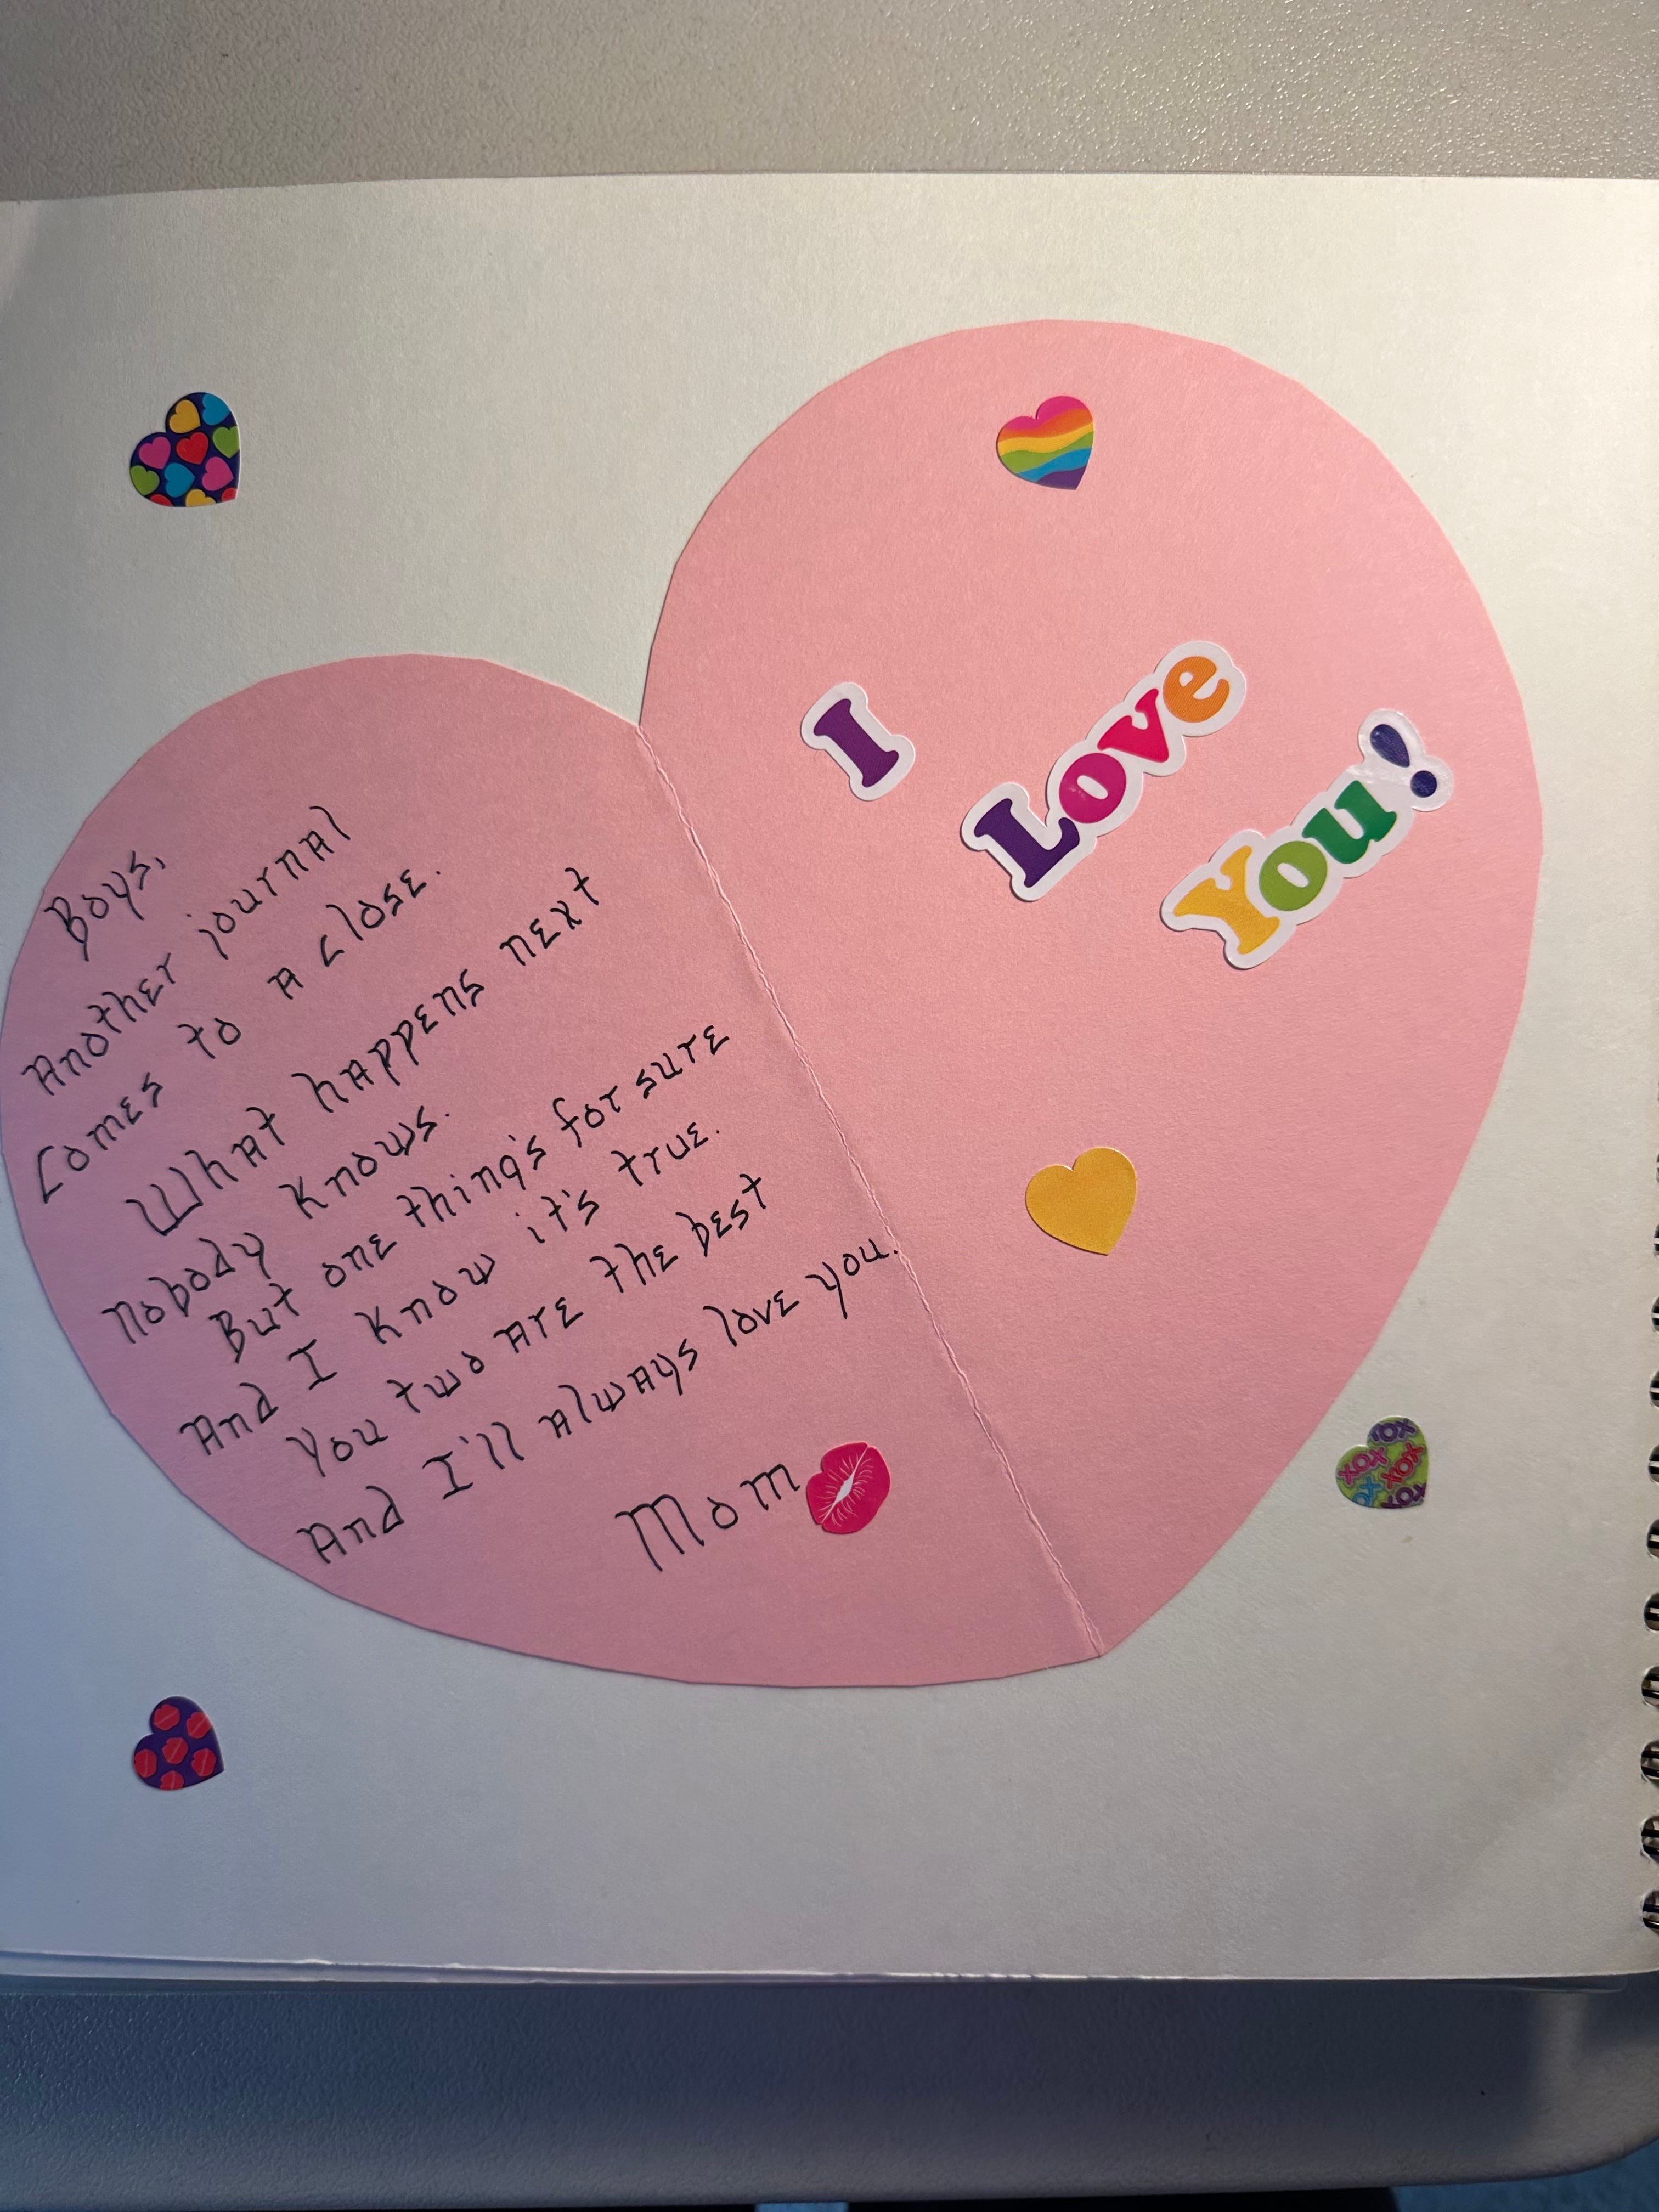 Boys,
Another journal
comes to a close.
What happens next
nobody knows.
But one thing's for sure
And I know it's true.
You two are the best
And I'll always love you.
Mom
I
Love
You!
XOX
XOX
XOX